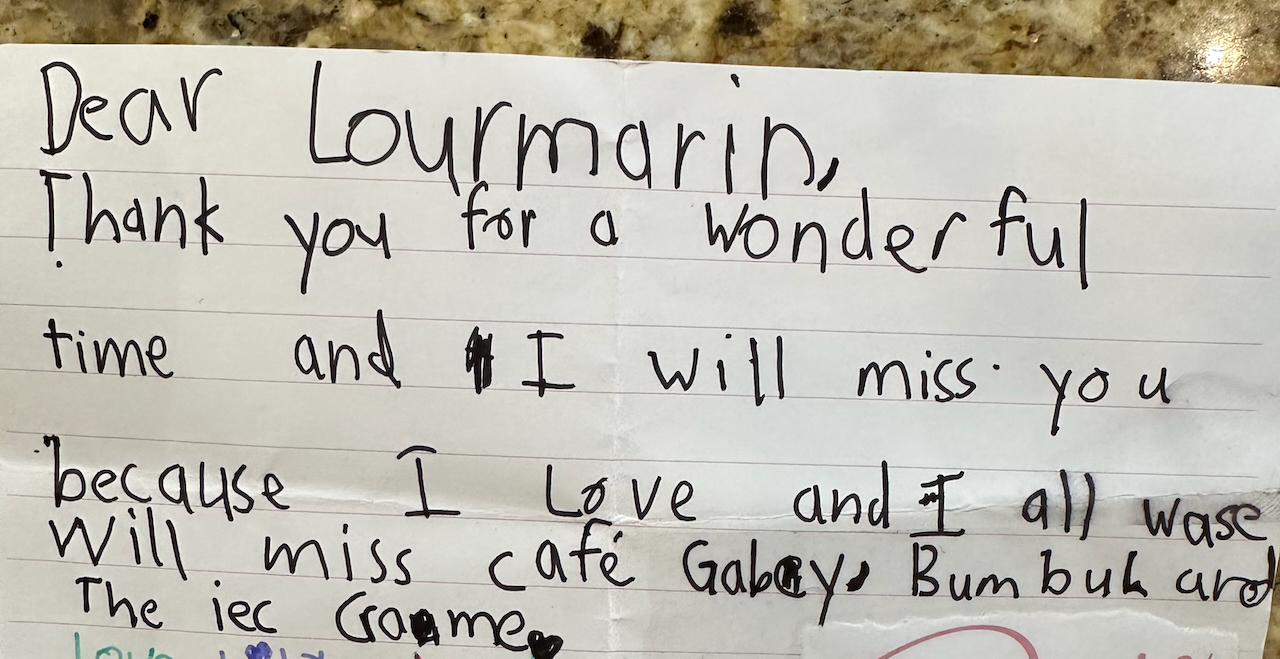 Dear Lourmarin,
Thank you for a wonderful
time and I will miss you
because I Love and I all wase
Will miss café Gabey, Bum buk and
The iec Crame
Love